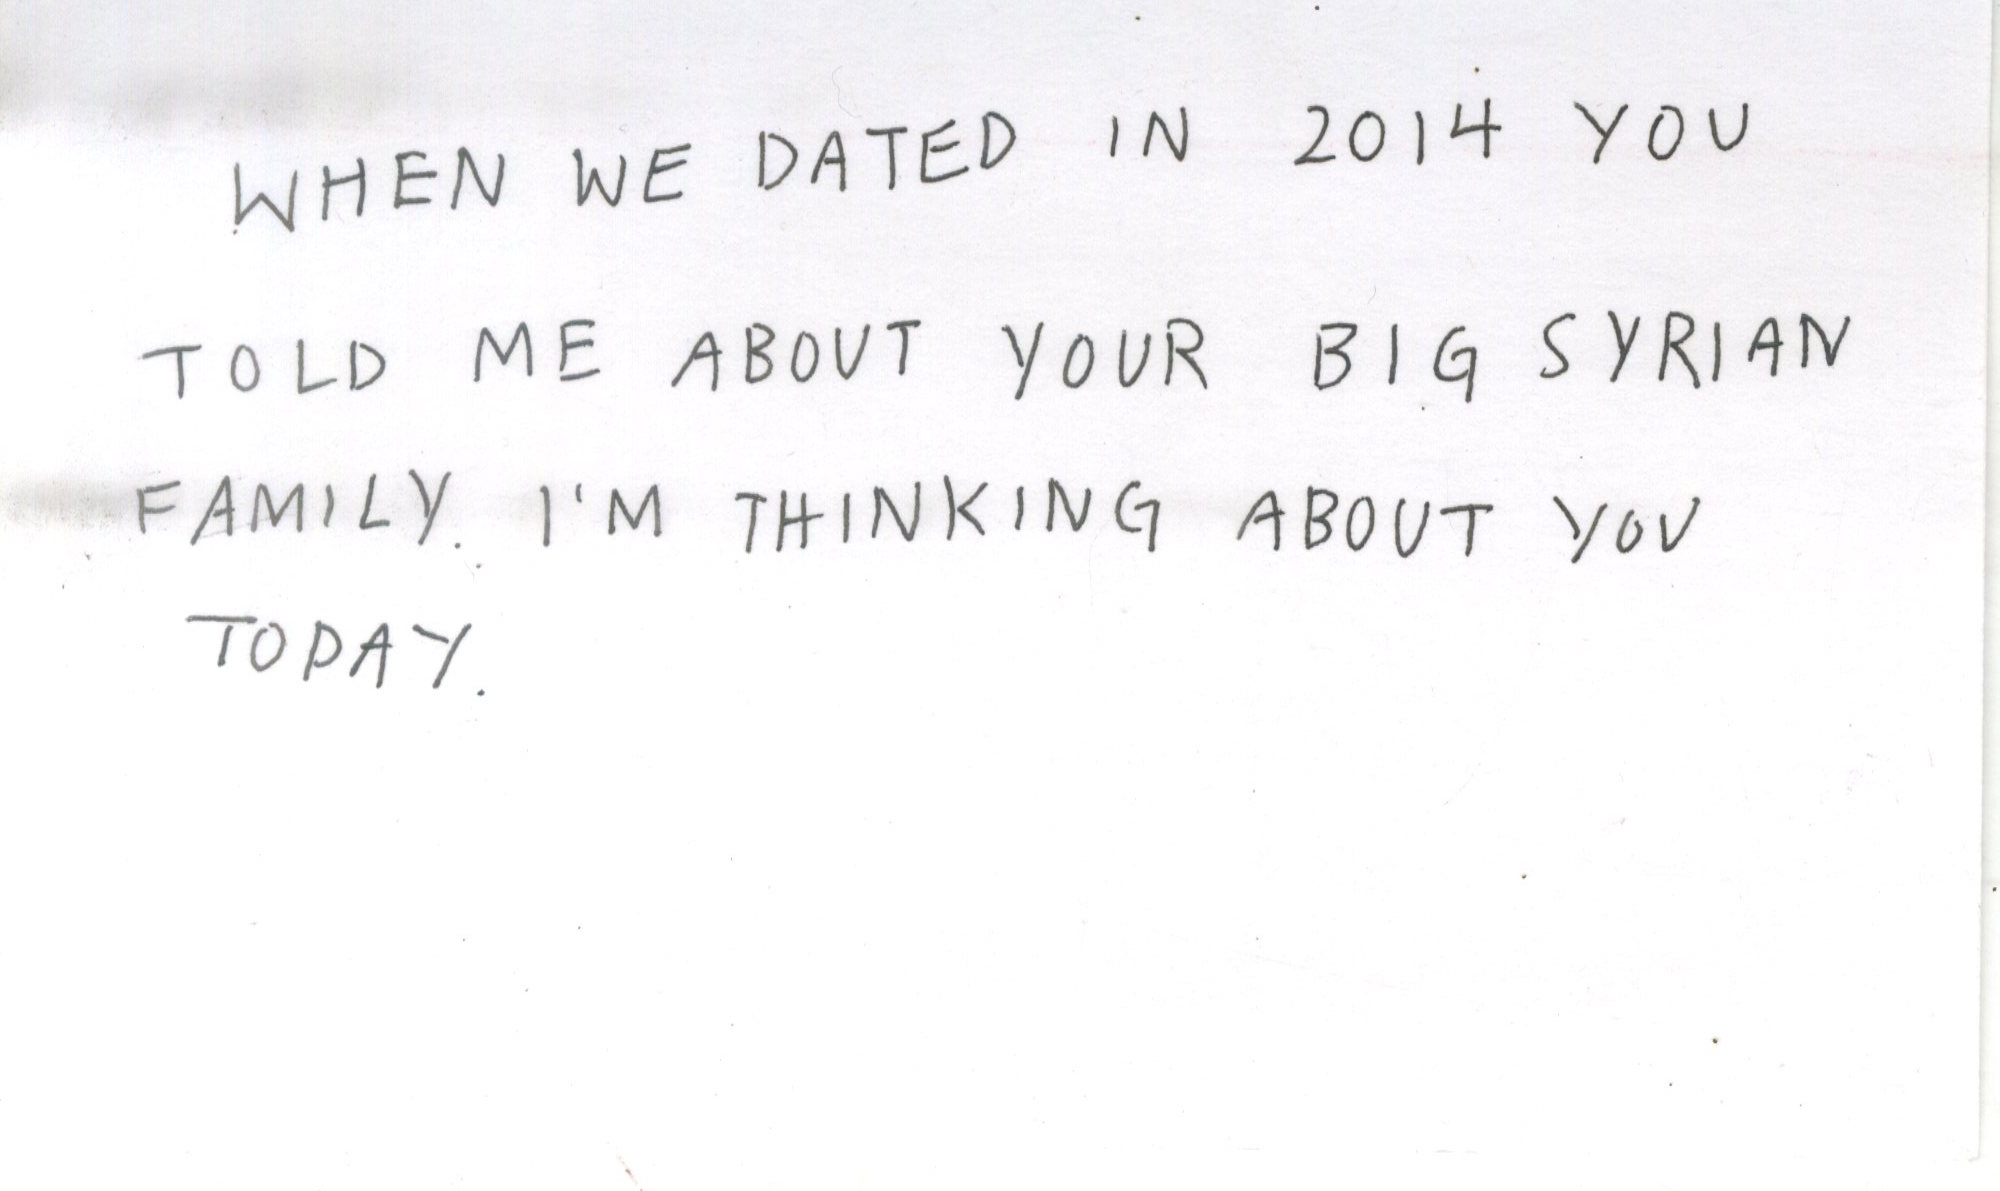 WHEN WE DATED IN 2014 YOU
TOLD ME ABOUT YOUR BIG SYRIAN
FAMILY. I'M THINKING ABOUT YOU
TODAY.